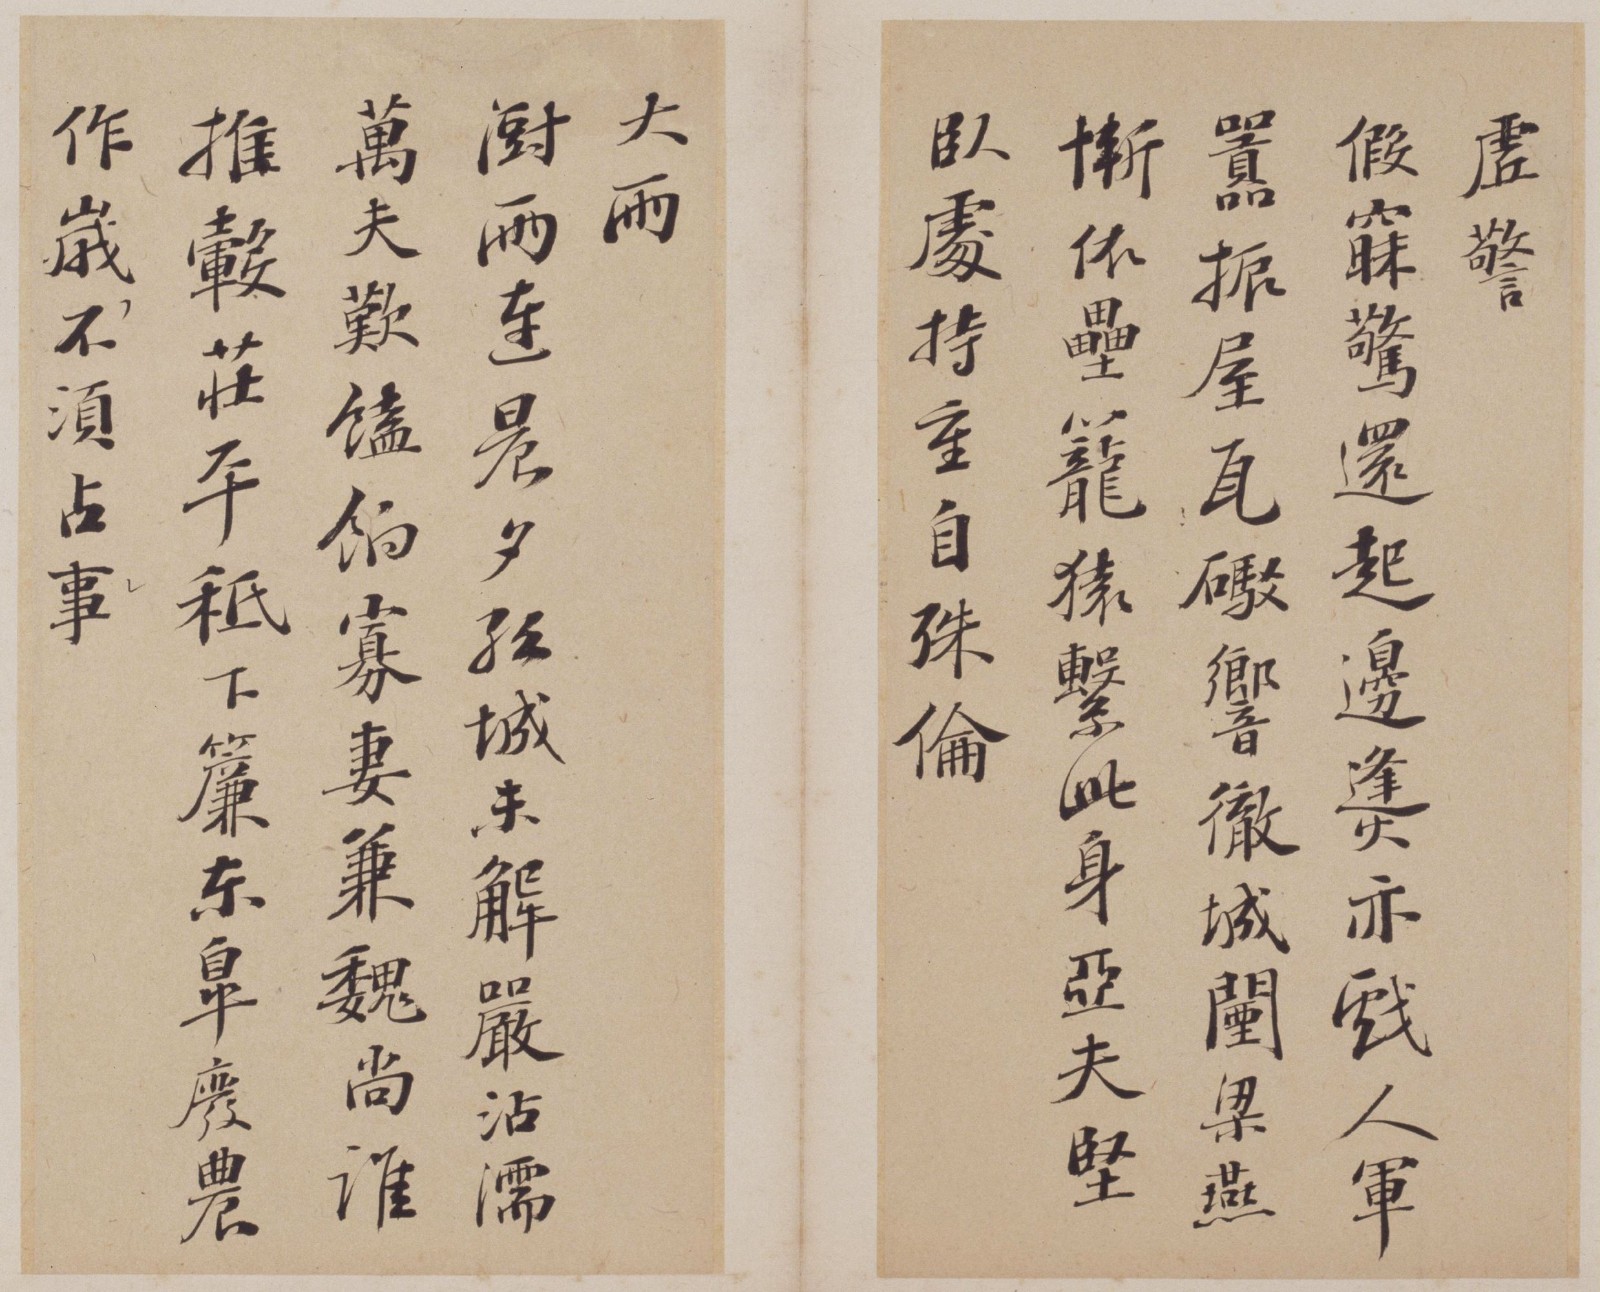 虛警
假寐驚還起邊燧亦戲人軍
囂振屋瓦礮響徹城闉梁燕
慚依壘籠猿繫此身亞夫堅
臥處持重自殊倫
大雨
澍雨連晨夕孤城未解嚴沾濡
萬夫歎饁餉寡妻兼魏尚誰
推轂莊平祗下簾東皐廢農
作歲不須占事